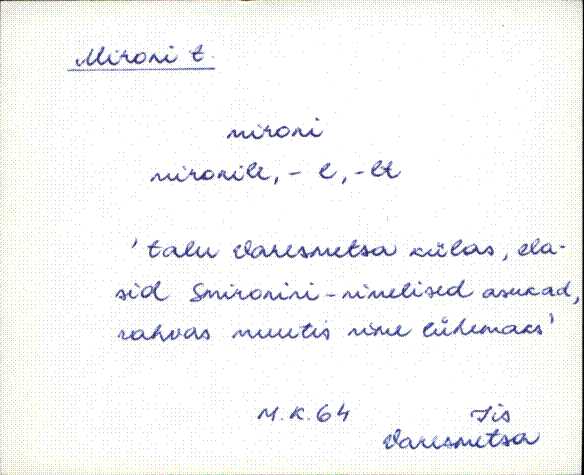 Mironi t.
mironi
mironile, - l, -lt
'talu Varesmetsa külas, ela-
sid Smironini-nimelised asukad,
rahvas muutis nime lühemaks'
M.K. 64 Iis
Varesmetsa